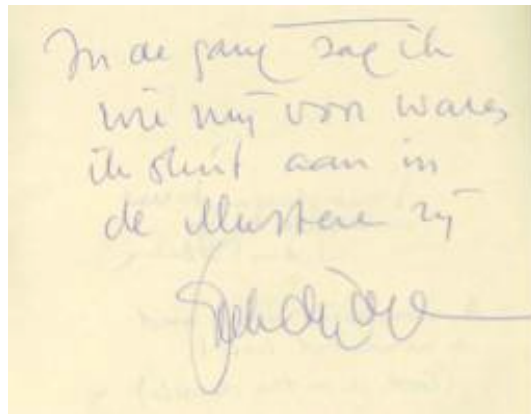 In de gang zag ik
wie mij voor waren
ik sluit aan in
de illustere rij